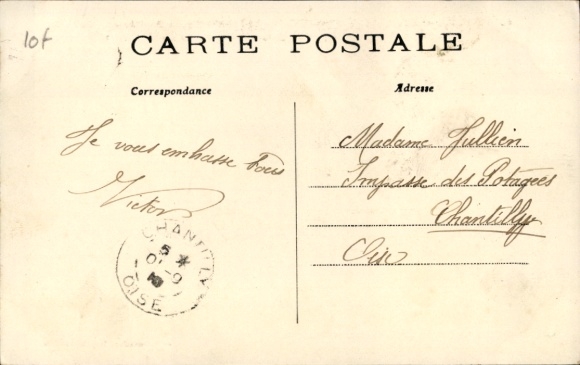 10f
CARTE POSTALE
Correspondance
Adresse
Je vous embrasse tous
Victor
Madame Jullien
Impasse des Potagers
Chantilly
Oise
CHANTILLY
OISE